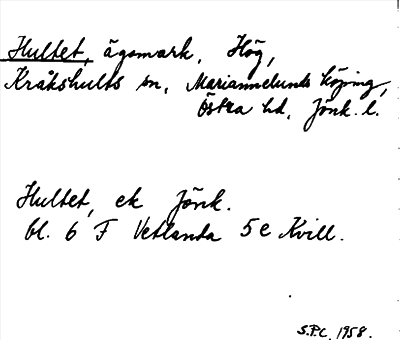 Hultet, ägomark, Hög,
Kråkshults sn, Mariannelunds köping,
Östra hd, Jönk. l.
Hultet, ek Jönk.
bl. 6 F Vetlanda 5e Kvill.
S.P.C. 1958.